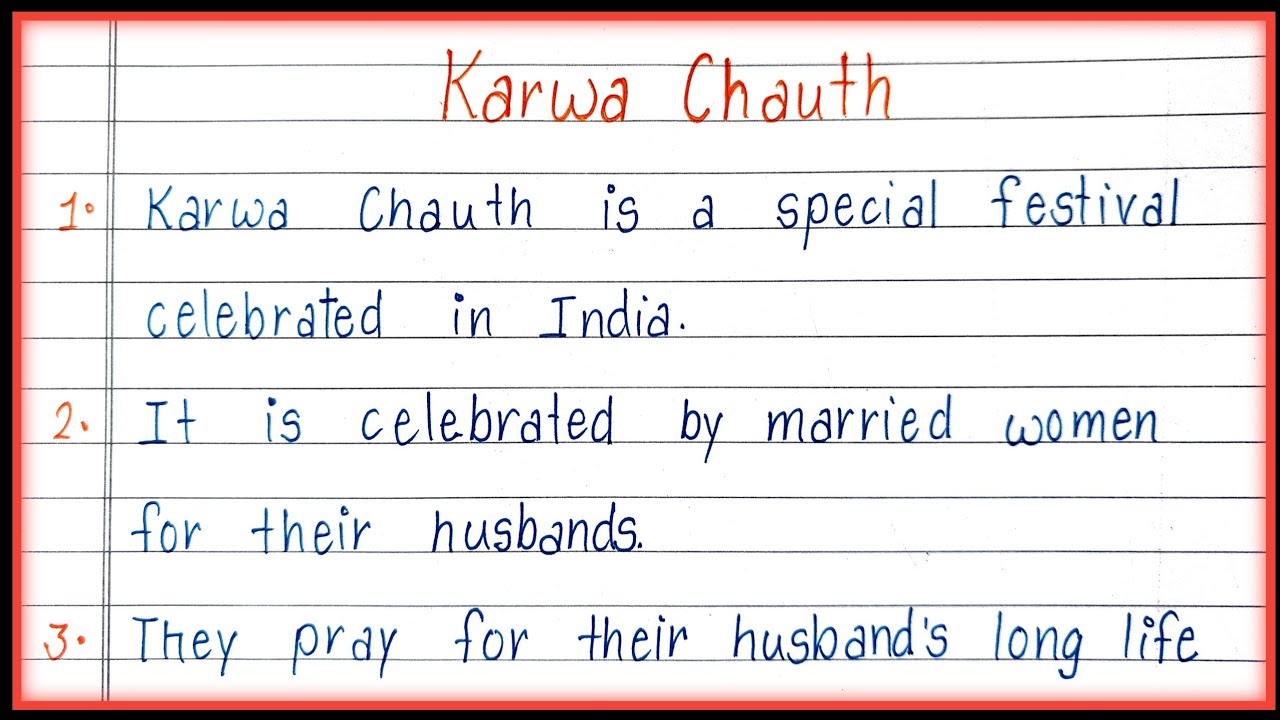 Karwa Chauth
1. Karwa Chauth is a special festival
celebrated in India.
2. It is celebrated by married women
for their husbands.
3. They pray for their husband's long life